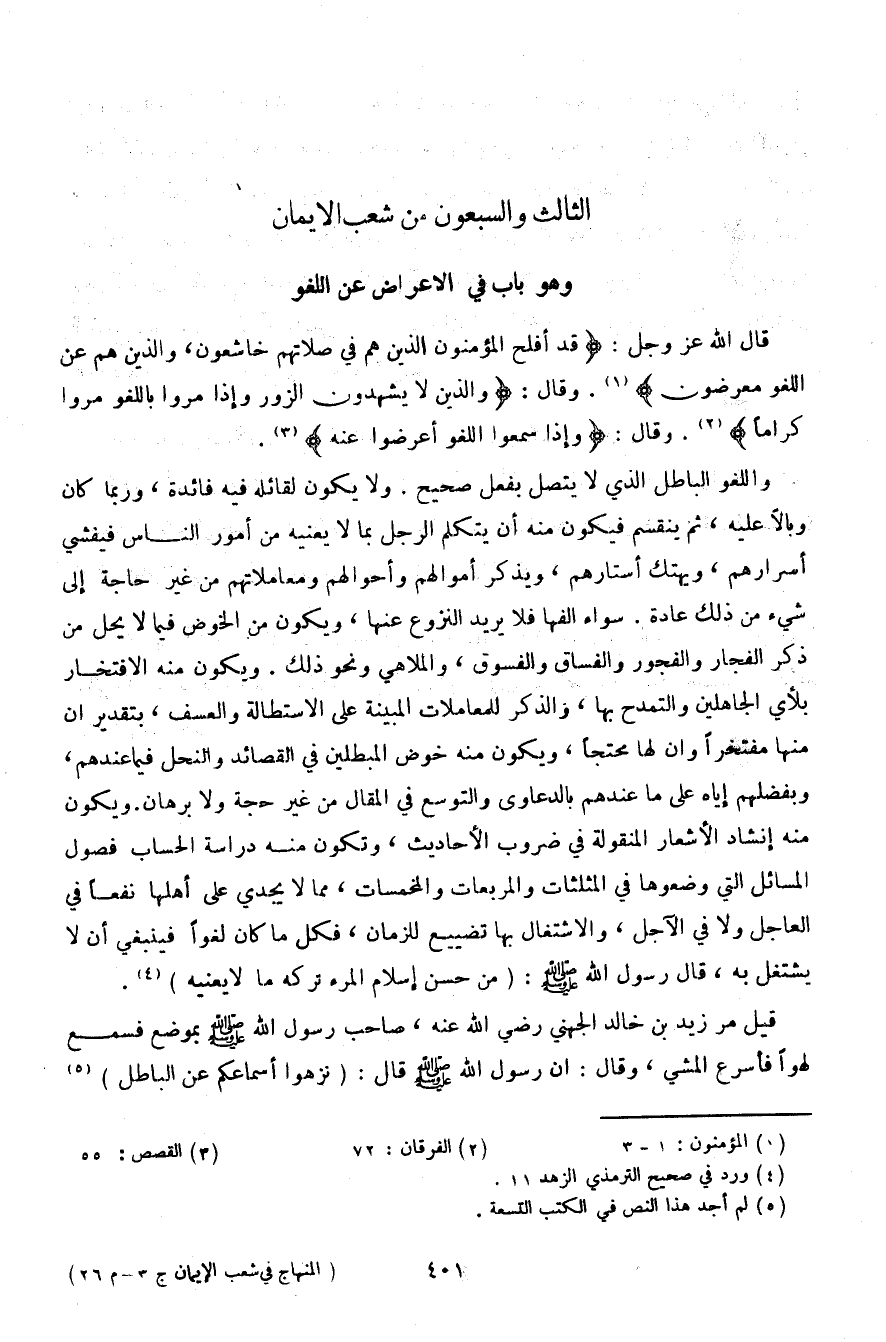 الثالث والسبعون من شعب الايمان
وهو باب في الاعراض عن اللغو
قال الله عز وجل : ﴿ قد أفلح المؤمنون الذين هم في صلاتهم خاشعون، والذين هم عن
اللغو معرضون ﴾ (١) . وقال : ﴿ والذين لا يشهدون الزور وإذا مروا باللغو مروا
كراماً ﴾ (٢) . وقال : ﴿ وإذا سمعوا اللغو أعرضوا عنه ﴾ (٣) .
واللغو الباطل الذي لا يتصل بفعل صحيح . ولا يكون لقائله فيه فائدة ، وربما كان
وبالاً عليه ، ثم ينقسم فيكون منه أن يتكلم الرجل بما لا يعنيه من أمور النـــاس فيفشي
أسرارهم ، ويهتك أستارهم ، ويذكر أموالهم وأحوالهم ومعاملاتهم من غير حاجة إلى
شيء من ذلك عادة . سواء الفها فلا يريد النزوع عنها ، ويكون من الخوض فيما لا يحل من
ذكر الفجار والفجور والفساق والفسوق ، والملاهي ونحو ذلك . ويكون منه الافتخــار
بلأي الجاهلين والتمدح بها ، والذكر للمعاملات المبينة على الاستطالة والعسف ، بتقدير ان
منها مفتخراً وان لها محتجاً ، ويكون منه خوض المبطلين في القصائد والنحل فيماعندهم ،
وبفضلهم إياه على ما عندهم بالدعاوى والتوسع في المقال من غير حجة ولا برهان.ويكون
منه إنشاد الأشعار المنقولة في ضروب الأحاديث ، وتكون منــه دراسة الحساب فصول
المسائل التي وضعوها في المثلثات والمربعات والمخمسات ، مما لا يجدي على أهلها نفعــاً في
العاجل ولا في الآجل ، والاشتغال بها تضييع للزمان ، فكل ما كان لغواً فينبغي أن لا
يشتغل به ، قال رسول الله ﷺ : ( من حسن إسلام المرء تركه ما لايعنيه ) (٤) .
قيل مر زيد بن خالد الجهني رضي الله عنه ، صاحب رسول الله ﷺ بموضع فسمــع
لهواً فأسرع المشي ، وقال : ان رسول الله ﷺ قال : ( نزهوا أسماعكم عن الباطل ) (٥)
(١) المؤمنون : ١ - ٣ (٢) الفرقان : ٧٢ (٣) القصص : ٥٥
(٤) ورد في صحيح الترمذي الزهد ١١ .
(٥) لم أجد هذا النص في الكتب التسعة .
٤٠١ ( المنهاج في شعب الإيمان ج ٣ - م ٢٦ )